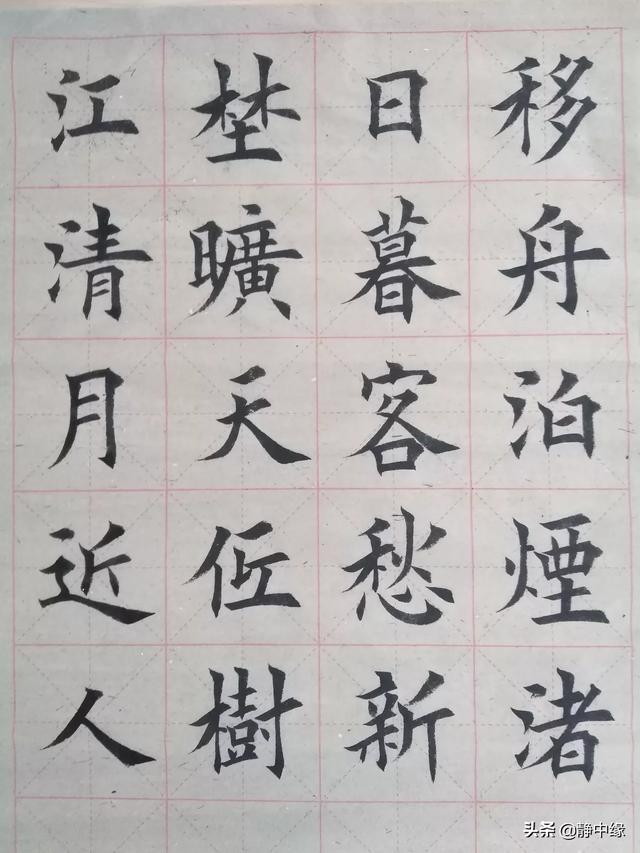 移舟泊煙渚
日暮客愁新
埜曠天仾樹
江清月近人
头条 @静中缘